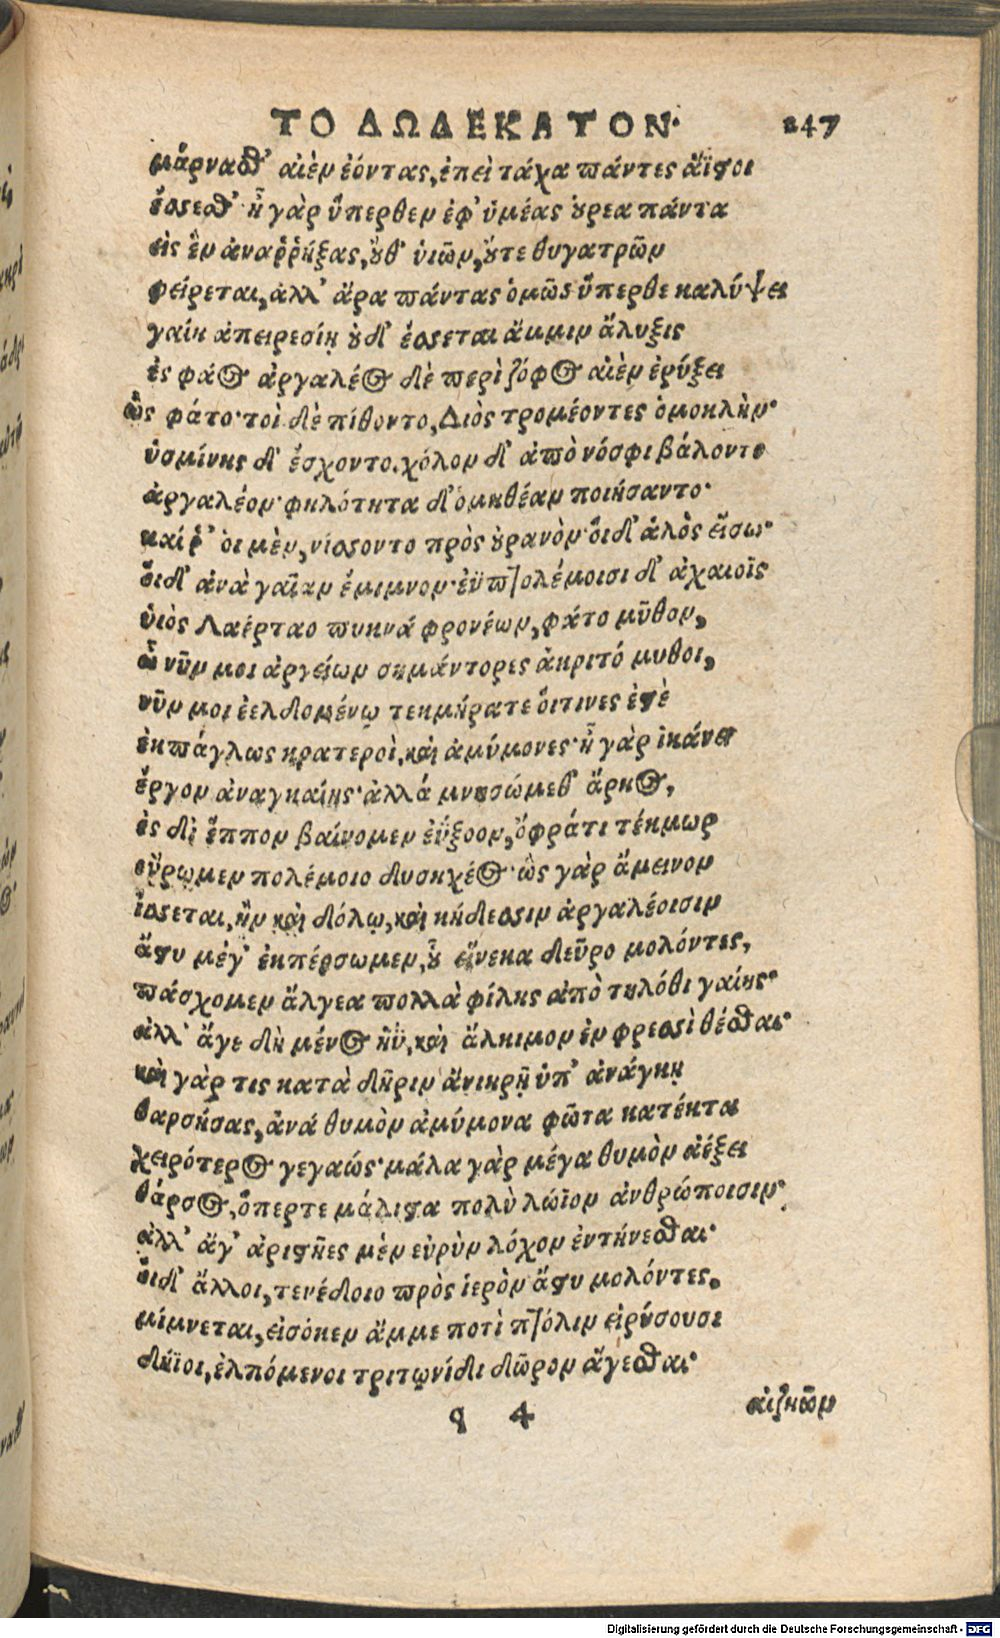 ΤΟ ΔΩΔΕΚΑΤΟΝ· 247
μάρνασθ' αἰὲν ἐόντας, ἐπεὶ τάχα πάντες ἄϊστοι
ἔσσεσθ' ἦ γὰρ ὕπερθεν ἐφ' ὑμέας οὔρεα πάντα
εἰς ἓν ἀναῤῥήξας, οὔθ' ὑιῶν, οὔτε θυγατρῶν
φείρεται, ἀλλ' ἄρα πάντας ὁμῶς ὕπερθε καλύψει
γαίη ἀπειρεσίῃ οὐδ' ἔσσεται ἄμμιν ἄλυξις
ἐς φάος ἀργαλέος δὲ περὶ ζόφος αἰὲν ἐρύξει
ὣς φάτο· τοὶ δὲ πίθοντο, Διὸς τρομέοντες ὁμοκλὴν·
ὑσμίνης δ' ἔσχοντο. χόλον δ' ἀπὸ νόσφι βάλοντο
ἀργαλέον· φηλότητα δ' ὁμηθέαν ποιήσαντο·
καί ῥ' οἱ μὲν, νίσσοντο πρὸς οὐρανὸν· οἵδ' ἁλὸς εἴσω·
οἵδ' ἀνὰ γαῖαν ἔμιμνον· ἐϋπτολέμοισι δ' ἀχαιοῖς
ὑιὸς Λαέρταο πυκινά φρονέων, φάτο μῦθον,
ὦ νῦν μοι ἀργείων σημάντορες ἀκριτό μυθοι,
νῦν μοι ἐελδομένῳ τεκμήρατε οἵτινες ἐστὲ
ἐκπάγλως κρατεροὶ, καὶ ἀμύμονες· ἦ γὰρ ἱκάνει
ἔργον ἀναγκαίης· ἀλλά μνησώμεθ' ἄρηος,
ἐς δ' ἵππον βαίνομεν ἐΰξοον, ὄφρά τι τέκμωρ
εὕρωμεν πολέμοιο δυσηχέος· ὣς γὰρ ἄμεινον
ἔσσεται, ἢν καὶ δόλῳ, καὶ κήδεσσιν ἀργαλέοισιν
ἄστυ μέγ' ἐκπέρσωμεν, οὗ εἵνεκα δεῦρο μολόντες,
πάσχομεν ἄλγεα πολλὰ φίλης ἀπὸ τηλόθι γαίης·
ἀλλ' ἄγε δὴ μένος ἠῢ, καὶ ἄλκιμον ἐν φρεσσὶ θέσθαι·
καὶ γὰρ τις κατὰ δῆριν ἀνιηρῇ ὑπ' ἀνάγκῃ
θαρσήσας, ἀνά θυμὸν ἀμύμονα φῶτα κατέκτα
χειρότερος γεγαώς· μάλα γὰρ μέγα θυμὸν ἀέξει
θάρσος, ὅπερτε μάλιστα πολὺ λώϊον ἀνθρώποισιν·
ἀλλ' ἄγ' ἀριστῆες μὲν εὐρὺν λόχον ἐντήνεσθαι·
οἵδ' ἄλλοι, τενέδοιο πρὸς ἱερὸν ἄστυ μολόντες.
μίμνεται, εἰσόκεν ἄμμε ποτὶ πτόλιν εἰρύσουσι
δήϊοι, ἐλπόμενοι τριτωνίδι δῶρον ἄγεσθαι·
q 4 αἰζηῶν
Digitalisierung gefördert durch die Deutsche Forschungsgemeinschaft - DFG